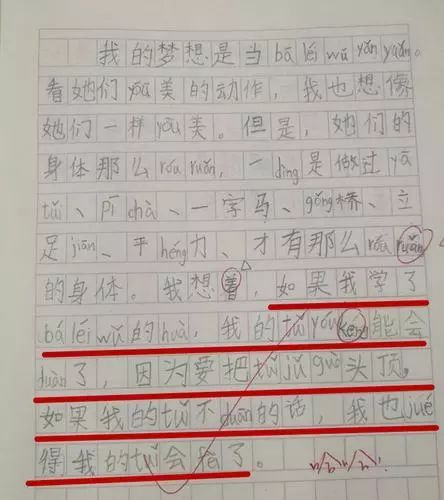 我的梦想是当bā léi wǔ yǎn yuán。
看她们yōu美的动作，我也想像
她们一样yōu美。但是，她们的
身体那么róu ruǎn，一dìng是做过yā
tuǐ、pǐ chà、一字马、gǒng桥、立
足jiān、平héng力、才有那么róu ruǎn
的身体。我想着，如果我学了
bá léi wǔ的huà，我的tuǐ yǒu kěn能会
duàn了，因为要把tuǐ jǔ guò头顶。
如果我的tuǐ不duàn的话，我也jué
得我的tuǐ会fèi了。